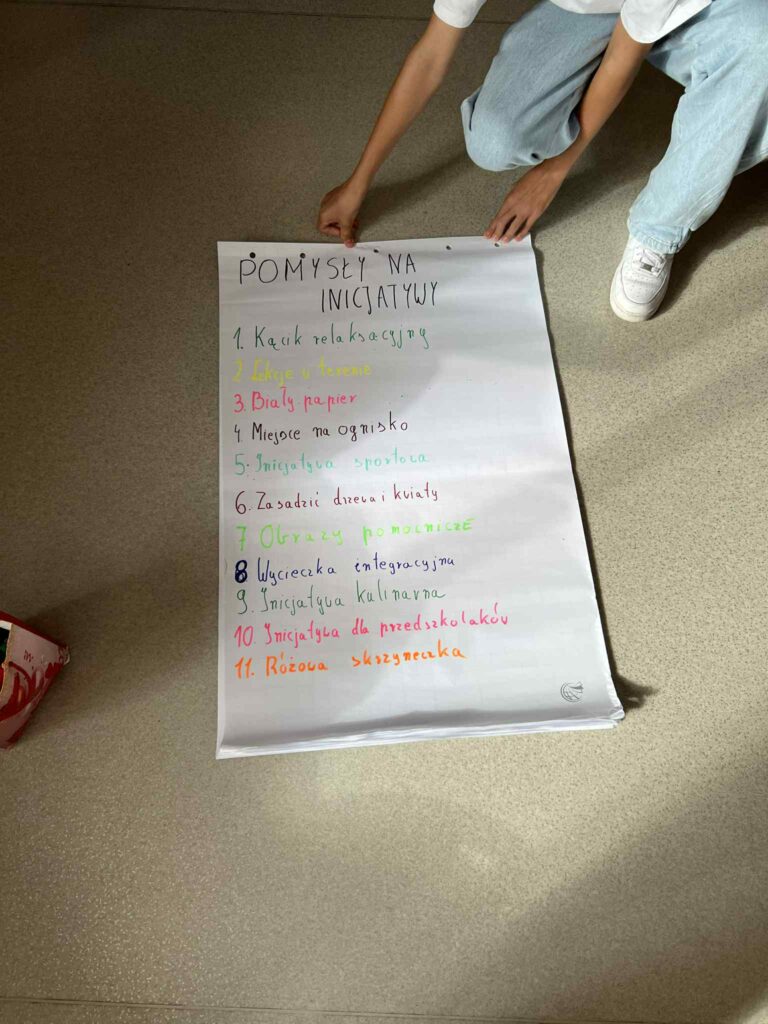 POMYSŁY NA
INICJATYWY
1. Kącik relaksacyjny
2. Lekcje w terenie
3. Biały papier
4. Miejsce na ognisko
5. Inicjatywa sportowa
6. Zasadzić drzewa i kwiaty
7 Obrazy pomocnicze
8 Wycieczka integracyjna
9. Inicjatywa kulinarna
10. Inicjatywa dla przedszkolaków
11. Różowa skszyneczka